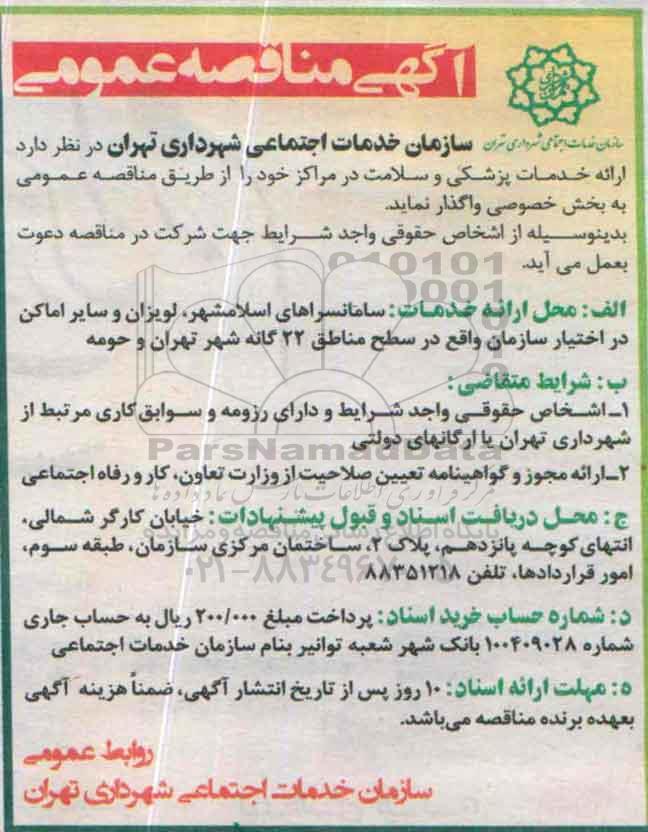 آگهی مناقصه عمومی
سازمان خدمات اجتماعی شهرداری تهران
سازمان خدمات اجتماعی شهرداری تهران در نظر دارد
ارائه خدمات پزشکی و سلامت در مراکز خود را از طریق مناقصه عمومی
به بخش خصوصی واگذار نماید.
بدینوسیله از اشخاص حقوقی واجد شرایط جهت شرکت در مناقصه دعوت
بعمل می آید.
الف: محل ارائه خدمات: سامانسراهای اسلامشهر، لویزان و سایر اماکن
در اختیار سازمان واقع در سطح مناطق ۲۲ گانه شهر تهران و حومه
ب: شرایط متقاضی:
۱ـ اشخاص حقوقی واجد شرایط و دارای رزومه و سوابق کاری مرتبط از
شهرداری تهران یا ارگانهای دولتی
ParsNamadData
۲ـ ارائه مجوز و گواهینامه تعیین صلاحیت از وزارت تعاون، کار و رفاه اجتماعی
مرکز فرآوری اطلاعات پارس نماد داده ها
ج: محل دریافت اسناد و قبول پیشنهادات: خیابان کارگر شمالی،
پایگاه اطلاع رسانی مناقصه و مزایده
انتهای کوچه پانزدهم، پلاک ۲، ساختمان مرکزی سازمان، طبقه سوم،
امور قراردادها، تلفن ۸۸۳۵۱۲۱۸
د: شماره حساب خرید اسناد: پرداخت مبلغ ۲۰۰/۰۰۰ ریال به حساب جاری
شماره ۱۰۰۴۰۹۰۲۸ بانک شهر شعبه توانیر بنام سازمان خدمات اجتماعی
ه: مهلت ارائه اسناد: ۱۰ روز پس از تاریخ انتشار آگهی، ضمناً هزینه آگهی
بعهده برنده مناقصه می‌باشد.
روابط عمومی
سازمان خدمات اجتماعی شهرداری تهران